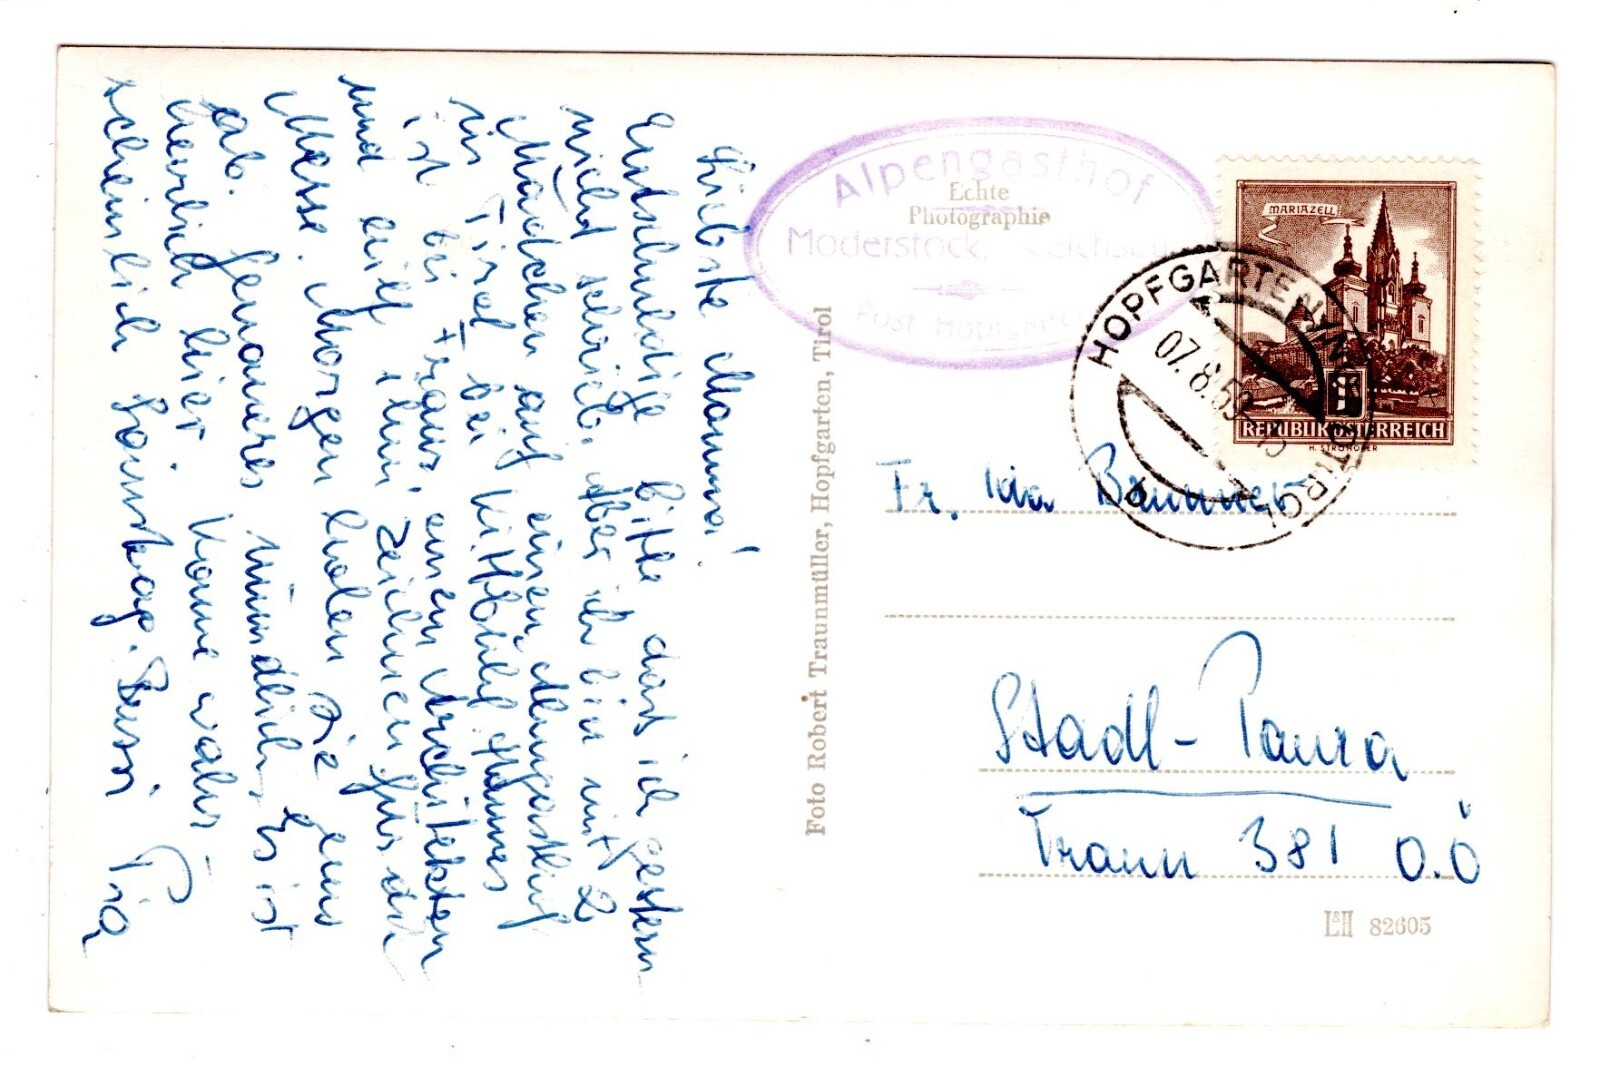 Liebste Mamma!
Entschuldige bitte das ich gestern
nicht schrieb. Aber ich bin mit 2
Mädchen auf einem Almgasthof
in Tirol bei Kitzbühel. Hannes
ist bei Franz, einem Architekten
und hilft ihm zeichnen für die
Messe. Morgen holen Sie uns
ab. Genaueres mündlich, Es ist
herrlich hier. Komme wahr-
scheinlich Samstag. Bussi Pia
Alpengasthof
Moderstock,
Post Hopfgarten
Echte
Photographie
Foto Robert Traunmüller, Hopfgarten, Tirol
MARIAZELL
1
REPUBLIK ÖSTERREICH
H. STROHOFER
HOPFGARTEN IN NORDTIROL
07.8.59
Fr. Ida
Stadl-Paura
Traun 381 O.Ö
L&H 82605